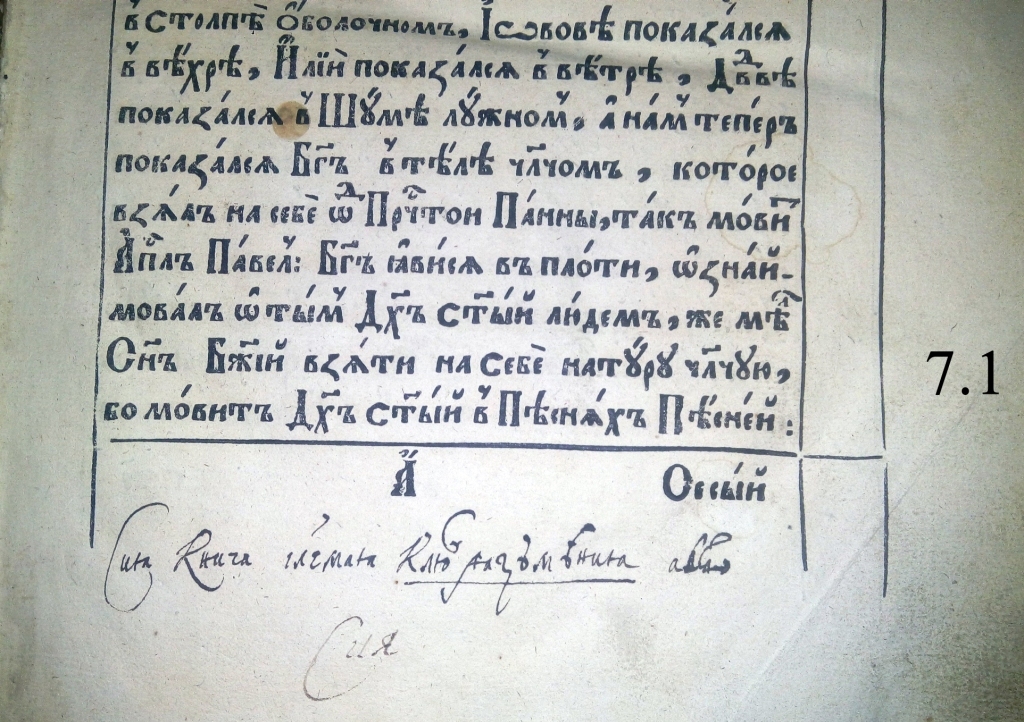 в̾ столпѣ̀ ѻ҆болочномъ, І҆ѡвовѣ показа́лсѧ
в̾ ве́хрѣ, И҆лїѝ показа́лсѧ в̾ вѣ́трѣ, Дв҃ⷣвѣ
показа́лсѧ в̾ Шꙋ́мѣ лꙋ́жном̾, а҆ на́м̾ тепе́ръ
показа́лсѧ Бг҃ъ в̾ тѣ́лѣ чл҃чомъ, кото́рое
взѧ́лъ на себѐ ѿ Прⷱ҇тои Па́нны, та́къ мо́ви́т̾
А҆пⷭ҇лъ Па́вел̾: Бг҃ъ ꙗ҆висѧ въ пло́ти, ѡ҆зна́й-
мова́лъ ѡ҆ ты́м̾ Дх҃ъ ст҃ы́й лю́демъ, же мѣ́л̾
Сн҃ъ Бж҃їй взѧ́ти на себѐ натꙋ́рꙋ чл҃чꙋю,
бо мо́витъ Дх҃ъ ст҃ы́й в̾ Пѣ́снѧ́хъ Пѣ́сне́й:
7.1
А҆҃ Ѻссы́й
Сиѧ Книга Клюⷱ҇ разꙋмѣниѧ
Сия